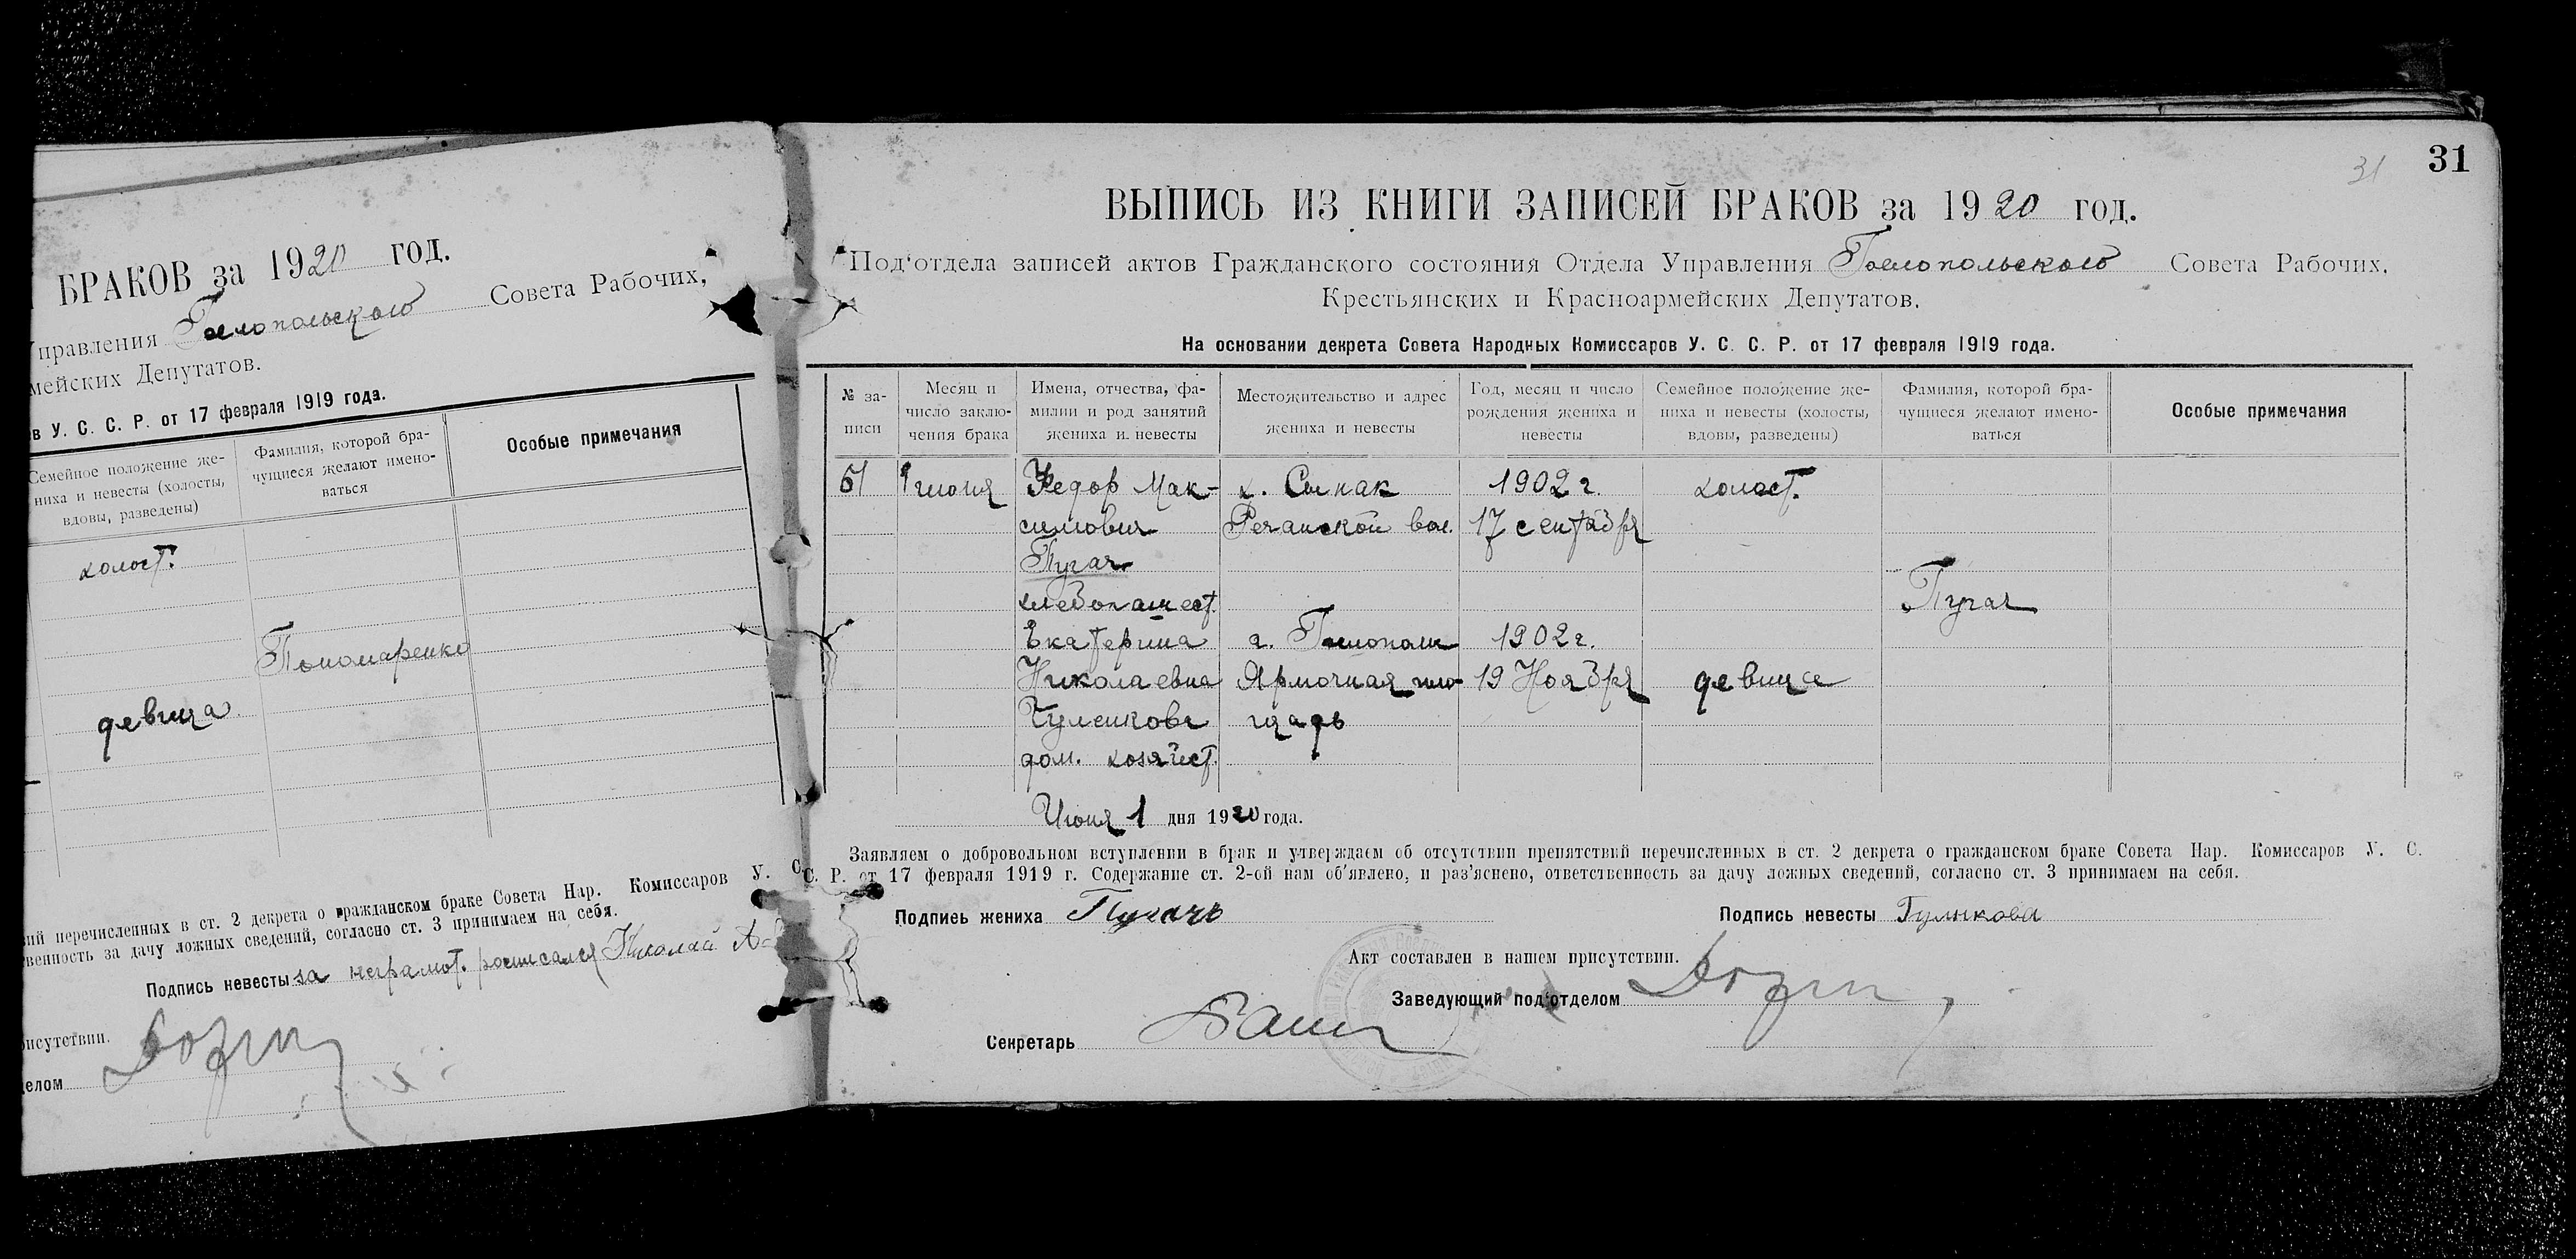 БРАКОВ за 1920 год.
Управления Гелопольского Совета Рабочих,
мейских Депутатов.
в У. С. С. Р. от 17 февраля 1919 года.
Семейное положение жениха и невесты (холосты, вдовы, разведены)
Фамилия, которой брачущиеся желают именоваться
Особые примечания
холост.
Пономаренко
девица
ий перечисленных в ст. 2 декрета о гражданском браке Совета Нар. Комиссаров У. С.
венность за дачу ложных сведений, согласно ст. 3 принимаем на себя.
Подпись невесты за неграмот. росписался Николай
рисутствии.
делом
31
31
ВЫПИСЬ ИЗ КНИГИ ЗАПИСЕЙ БРАКОВ за 1920 год.
Под'отдела записей актов Гражданского состояния Отдела Управления Гелопольского Совета Рабочих,
Крестьянских и Красноармейских Депутатов.
На основании декрета Совета Народных Комиссаров У. С. С. Р. от 17 февраля 1919 года.
№ за-
писи
Месяц и
число заклю-
чения брака
Имена, отчества, фа-
милии и род занятий
жениха и невесты
Местожительство и адрес
жениха и невесты
Год, месяц и число
рождения жениха и
невесты
Семейное положение же-
ниха и невесты (холосты,
вдовы, разведены)
Фамилия, которой бра-
чущиеся желают имено-
ваться
Особые примечания
51 1 июня Федор Мак- х. 1902 г. холост.
симович вол. 17 сентября
Пугач
хлебопашест. Пугач
Екатерина г. 1902 г.
Николаевна Ярмочная пло- 19 Ноября девица
щадь
дом. хозяйст.
Июня 1 дня 1920 года.
Заявляем о добровольном вступлении в брак и утверждаем об отсутствии препятствий перечисленных в ст. 2 декрета о гражданском браке Совета Нар. Комиссаров У. С.
С. Р. от 17 февраля 1919 г. Содержание ст. 2-ой нам об'явлено, и раз'яснено, ответственность за дачу ложных сведений, согласно ст. 3 принимаем на себя.
Подпись жениха Пугачь Подпись невесты
Акт составлен в нашем присутствии.
Заведующий под'отделом
Секретарь